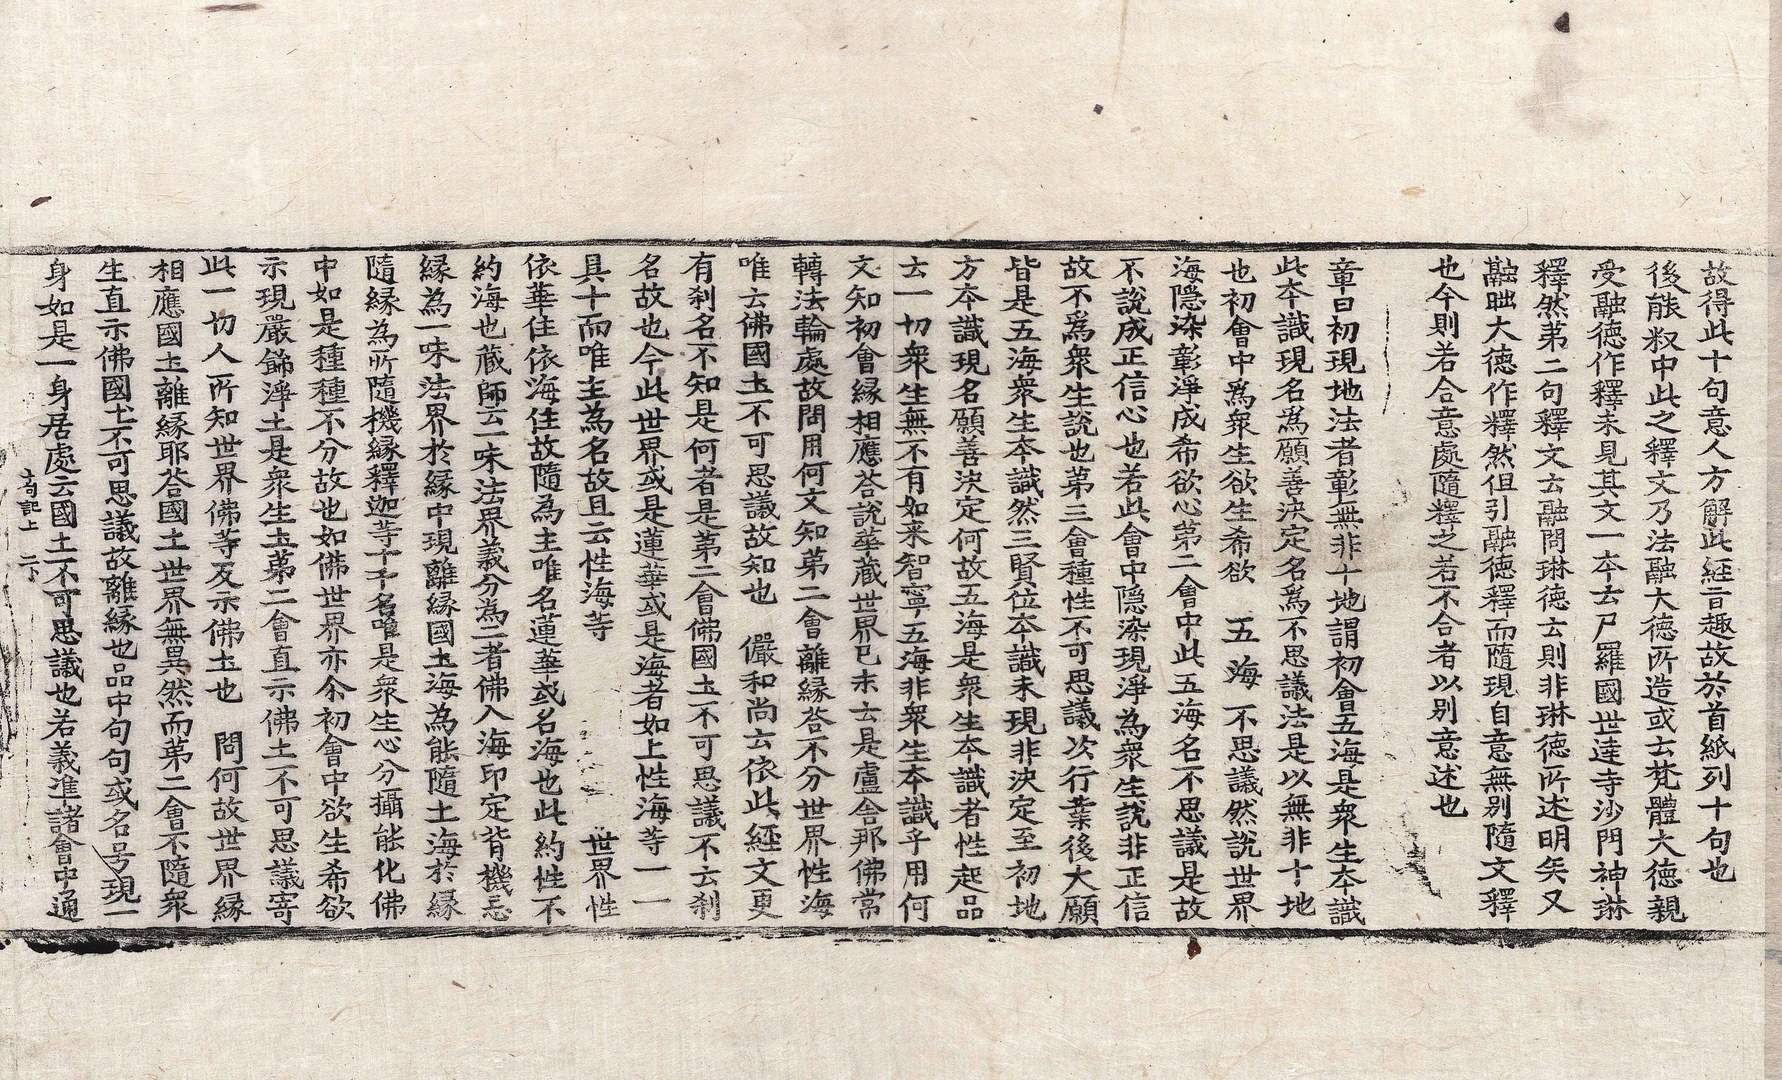 故得此十句意人方解此經旨趣故於首紙列十句也
後能叙中此之釋文乃法融大德所造或云梵體大德親
受融德作釋未見其文一本云尸羅國世達寺沙門神琳
釋然第二句釋文云融問琳德云則非琳德所述明矣又
融昢大德作釋然但引融德釋而隨現自意無別隨文釋
也今則若合意處隨釋之若不合者以別意述也
章曰初現地法者彰無非十地謂初會五海是衆生本識
此本識現名爲願善決定名爲不思議法是以無非十地
也初會中爲衆生欲生希欲 五海不思議然說世界
海隱染彰淨成希欲心第二會中此五海名不思議是故
不說成正信心也若此會中隱染現淨為衆生說非正信
故不爲衆生說也第三會種性不可思議次行業後大願
皆是五海衆生本識然三賢位本識未現非決定至初地
方本識現名願善決定何故五海是衆生本識者性起品
云一切衆生無不有如来智寧五海非衆生本識乎用何
文知初會緣相應荅說華藏世界已末云是盧舍那佛常
轉法輪處故問用何文知第二會離緣荅不分世界性海
唯云佛國土不可思議故知也 儼和尚云依此經文更
有刹名不知是何者是第二會佛國土不可思議不云刹
名故也今此世界或是蓮華或是海者如上性海等一一
具十而唯主為名故且云性海等 世界性
依華住依海住故隨為主唯名蓮華或名海也此約性不
約海也藏師云一味法界義分為二者佛入海印定背機忘
緣為一味法界於緣中現離緣國土海為能隨土海於緣
隨緣為所隨機緣釋迦等十千名唯是衆生心分攝能化佛
中如是種種不分故也如佛世界亦尒初會中欲生希欲
示現嚴餙淨土是衆生土第二會直示佛土不可思議寄
此一切人所知世界佛等及示佛土也 問何故世界緣
相應國土離緣耶荅國土世界無異然而第二會不隨衆
生直示佛國土不可思議故離緣也品中句句或名号現一
十句記上 二卜
身如是一身居處云國土不可思議也若義准諸會中通